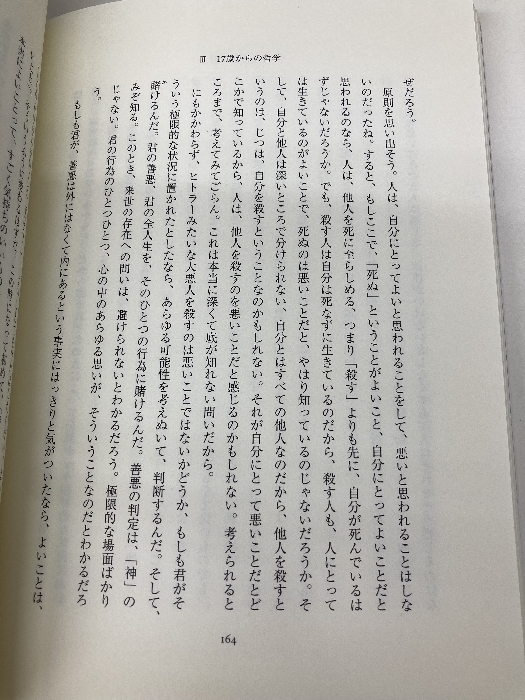 Ⅲ 17歳からの哲学
ぜだろう。
原則を思い出そう。人は、自分にとってよいと思われることをして、悪いと思われることはしな
いのだったね。すると、もしここで、「死ぬ」ということがよいこと、自分にとってよいことだと
思われるのなら、人は、他人を死に至らしめる、つまり「殺す」よりも先に、自分が死んでいるは
ずじゃないだろうか。でも、殺す人は自分は死なずに生きているのだから、殺す人も、人にとって
は生きているのがよいことで、死ぬのは悪いことだと、やはり知っているのじゃないだろうか。そ
して、自分と他人は深いところで分けられない、自分とはすべての他人なのだから、他人を殺すと
いうのは、じつは、自分を殺すということなのかもしれない。それが自分にとって悪いことだとど
こかで知っているから、人は、他人を殺すのを悪いことだと感じるのかもしれない。考えられると
ころまで、考えてみてごらん。これは本当に深くて底が知れない問いだから。
にもかかわらず、ヒトラーみたいな大悪人を殺すのは悪いことではないかどうか、もしも君がそ
ういう極限的な状況に置かれたとしたなら、あらゆる可能性を考えぬいて、判断するんだ。そして、
賭けるんだ。君の善悪、君の全人生を、そのひとつの行為に賭けるんだ。善悪の判定は、「神」の
みぞ知る。このとき、来世の存在への問いは、避けられないとわかるだろう。極限的な場面ばかり
じゃない。君の行為のひとつひとつ、心の中のあらゆる思いが、そういうことなのだとわかるだろ
う。
もしも君が、善悪は外にはなくて内にあるという事実にはっきりと気がついたなら、よいことは、
164